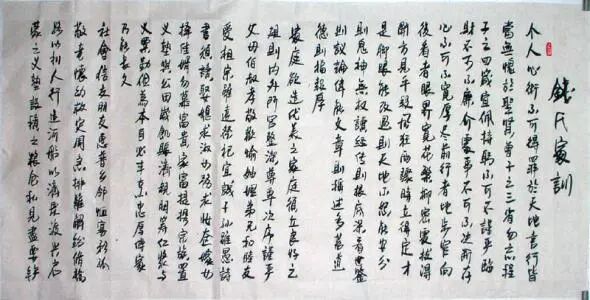 錢氏家訓
个人心術不可得罪於天地言行皆
當無愧於聖賢曾子之三省勿忘程
子之四箴宜佩持躬不可不謹嚴臨
財不可不廉介處事不可不決斷存
心不可不寬厚盡前行者地步窄向
後看者眼界寬花繁柳密處撥得
開方見手段風狂雨驟時立得定才
是腳跟能改過則天地不怒能安分
則鬼神無權讀經傳則根柢深看史鑒
則議論偉能文章則稱述多蓄道
德則福報厚
家庭欲造優美之家庭須立良好之
規則內外門閭整潔尊卑次序謹嚴
父母伯叔孝敬歡愉妯娌弟兄和睦友
愛祖宗雖遠祭祀宜誠子孫雖愚詩
書須讀娶媳求淑女勿計妝奩嫁女
擇佳婿勿慕富貴家富提攜宗族置
義塾與公田歲飢賑濟親朋籌仁漿與
義粟勤儉為本自必丰亨忠厚傳家
乃能長久
社會信交朋友惠普鄉鄰恤寡矜孤
敬老懷幼救災周急排難解紛修橋
路以利人行造河船以濟眾渡興啟
蒙之義塾設積穀之社倉私見盡要鏟